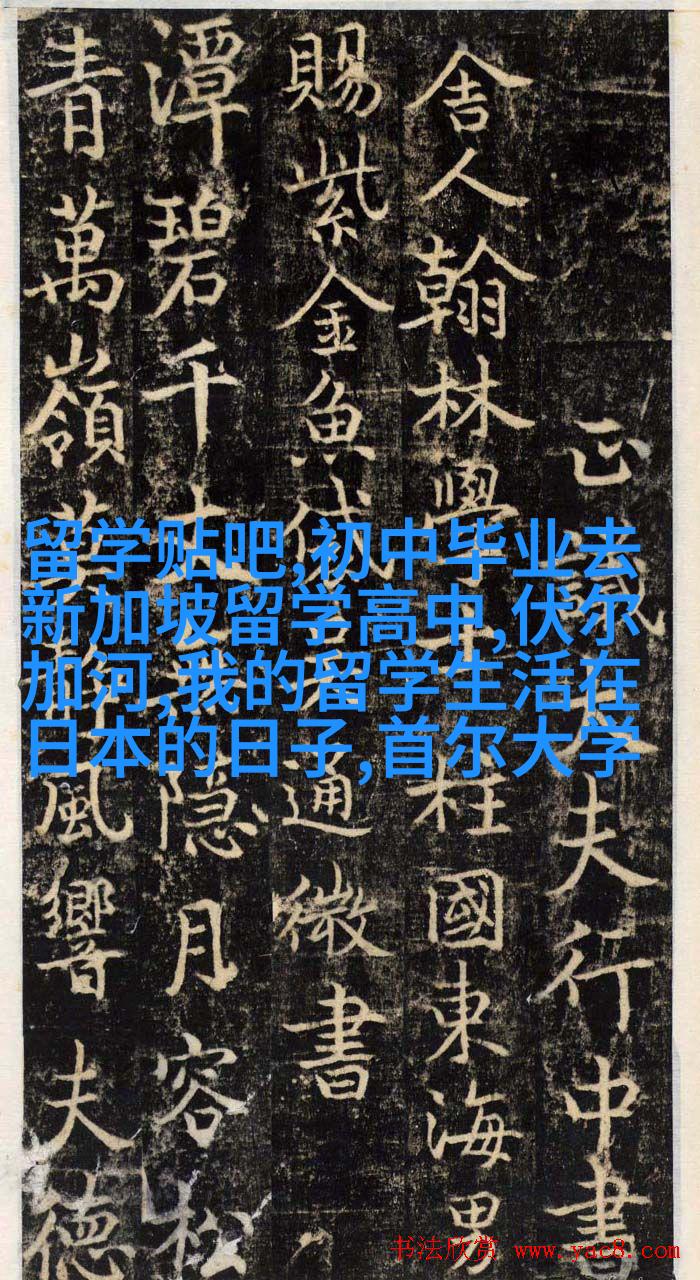 正大夫行中書
舍人翰林學柱國東海男
賜紫金魚通微書
潭碧千隱月容松
青萬嶺風響夫德
留学贴吧,初中毕业去
新加坡留学高中,伏尔
加河,我的留学生活在
日本的日子,首尔大学
书法欣赏 www.yac8.com